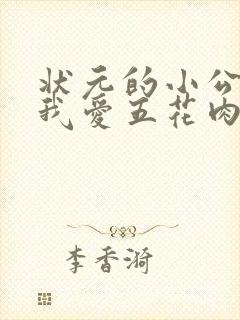 状元的小公
我爱五花肉
李香漪